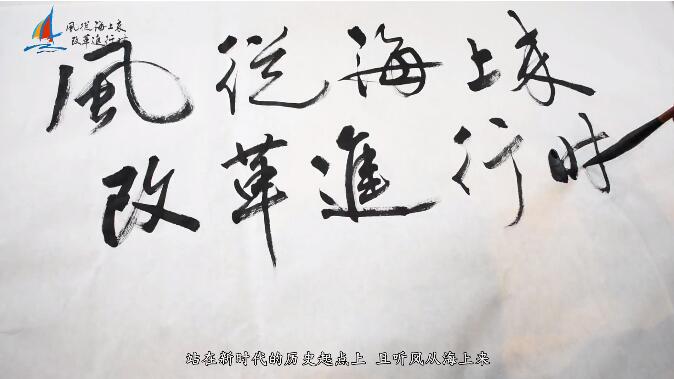 風從海上来
改革進行时
風從海上来
改革進行时
站在新时代的历史起点上 且听风从海上来